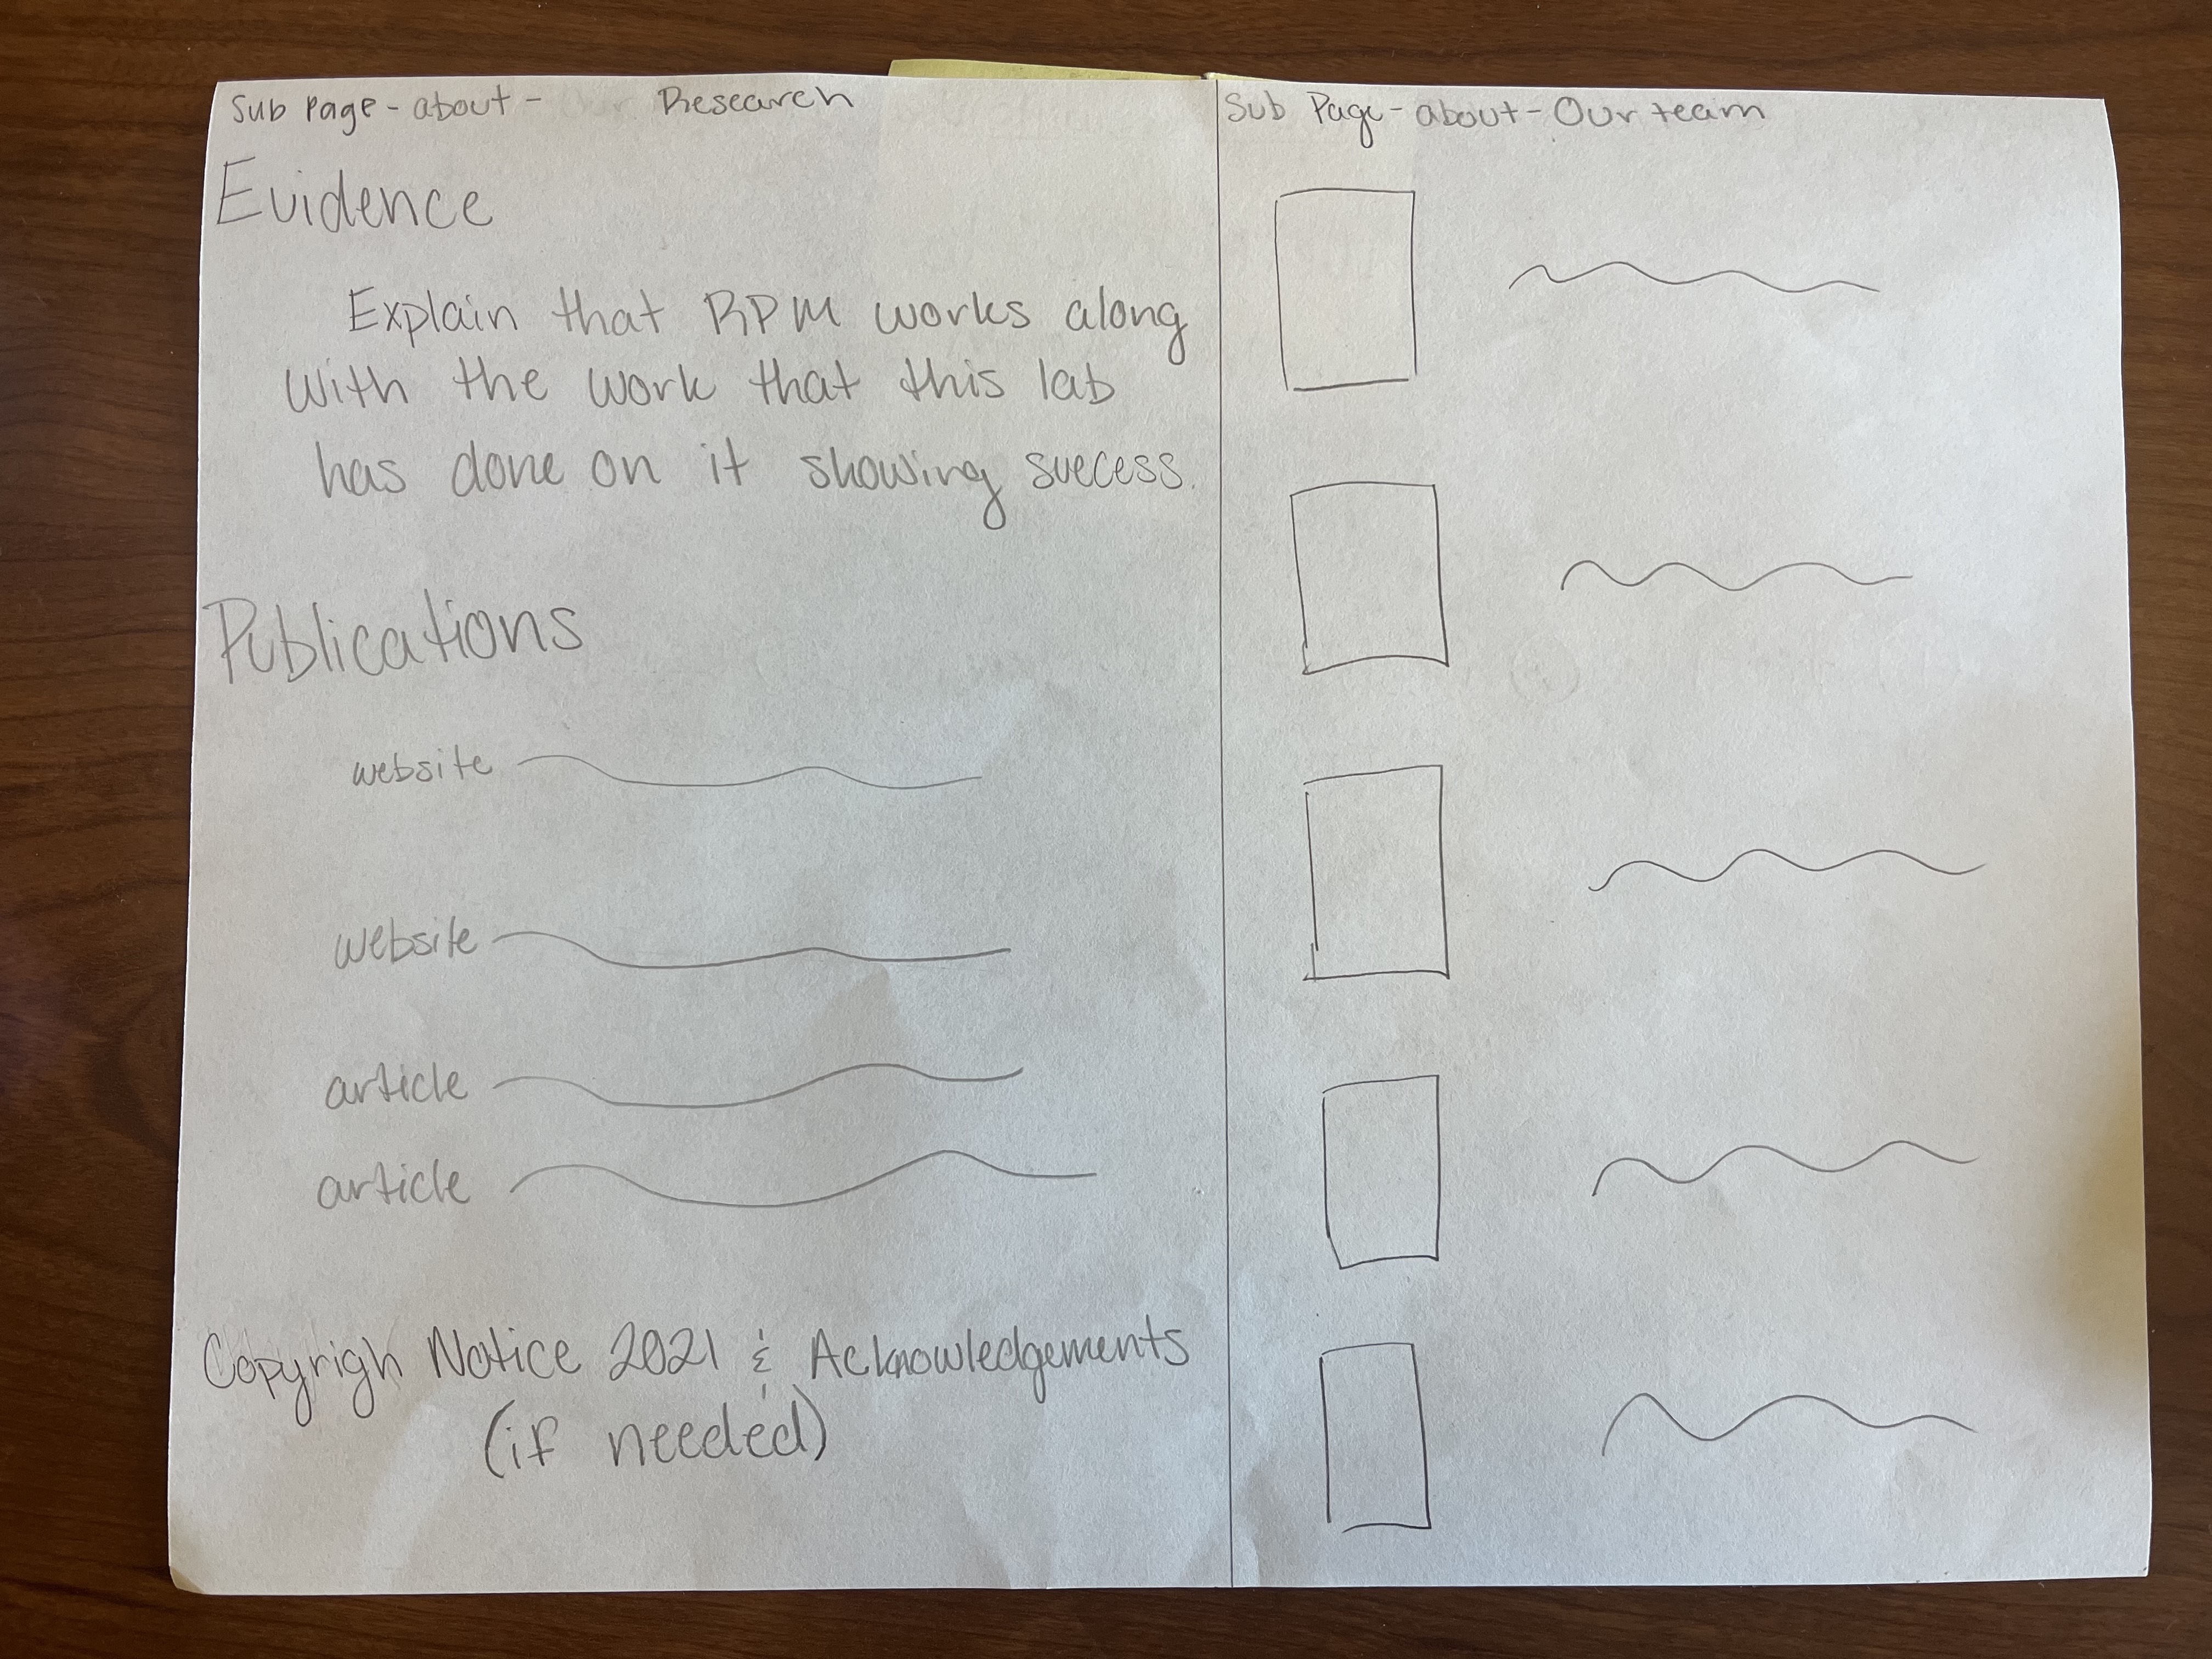 Sub Page - about - Research
Evidence
Explain that RPM works along
with the work that this lab
has done on it showing success.
Publications
website
website
article
article
Copyrigh Notice 2021 & Acknowledgements
(if needed)
Sub Page - about - Our team